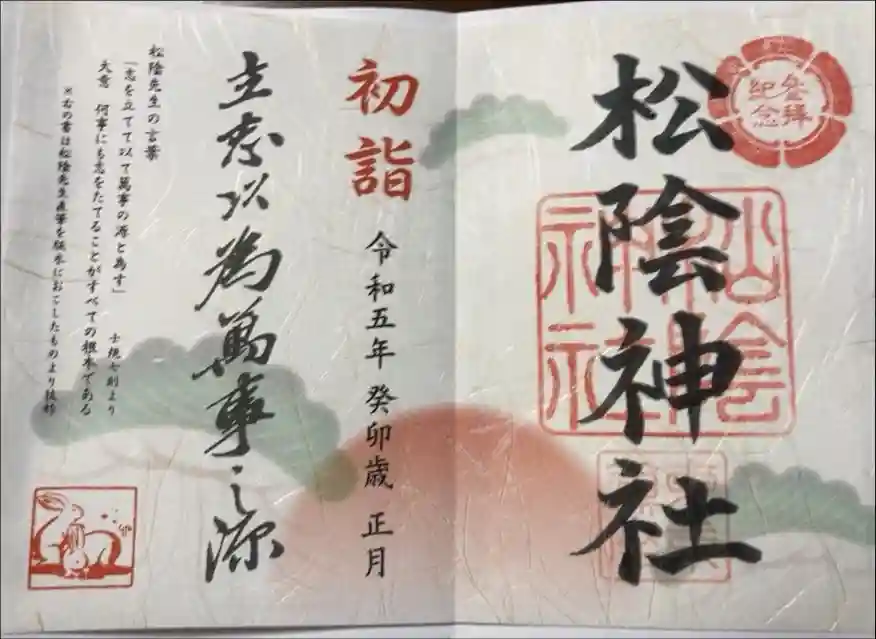 参拝
紀念
松陰神社
松陰
神社
初詣
令和五年 癸卯歳 正月
立志以為萬事之源
松陰先生の言葉
「志を立てて以て萬事の源と為す」 士規七則より
大意 何事にも志をたてることがすべての根本である
※右の書は松陰先生直筆を版木におこしたものより抜粋